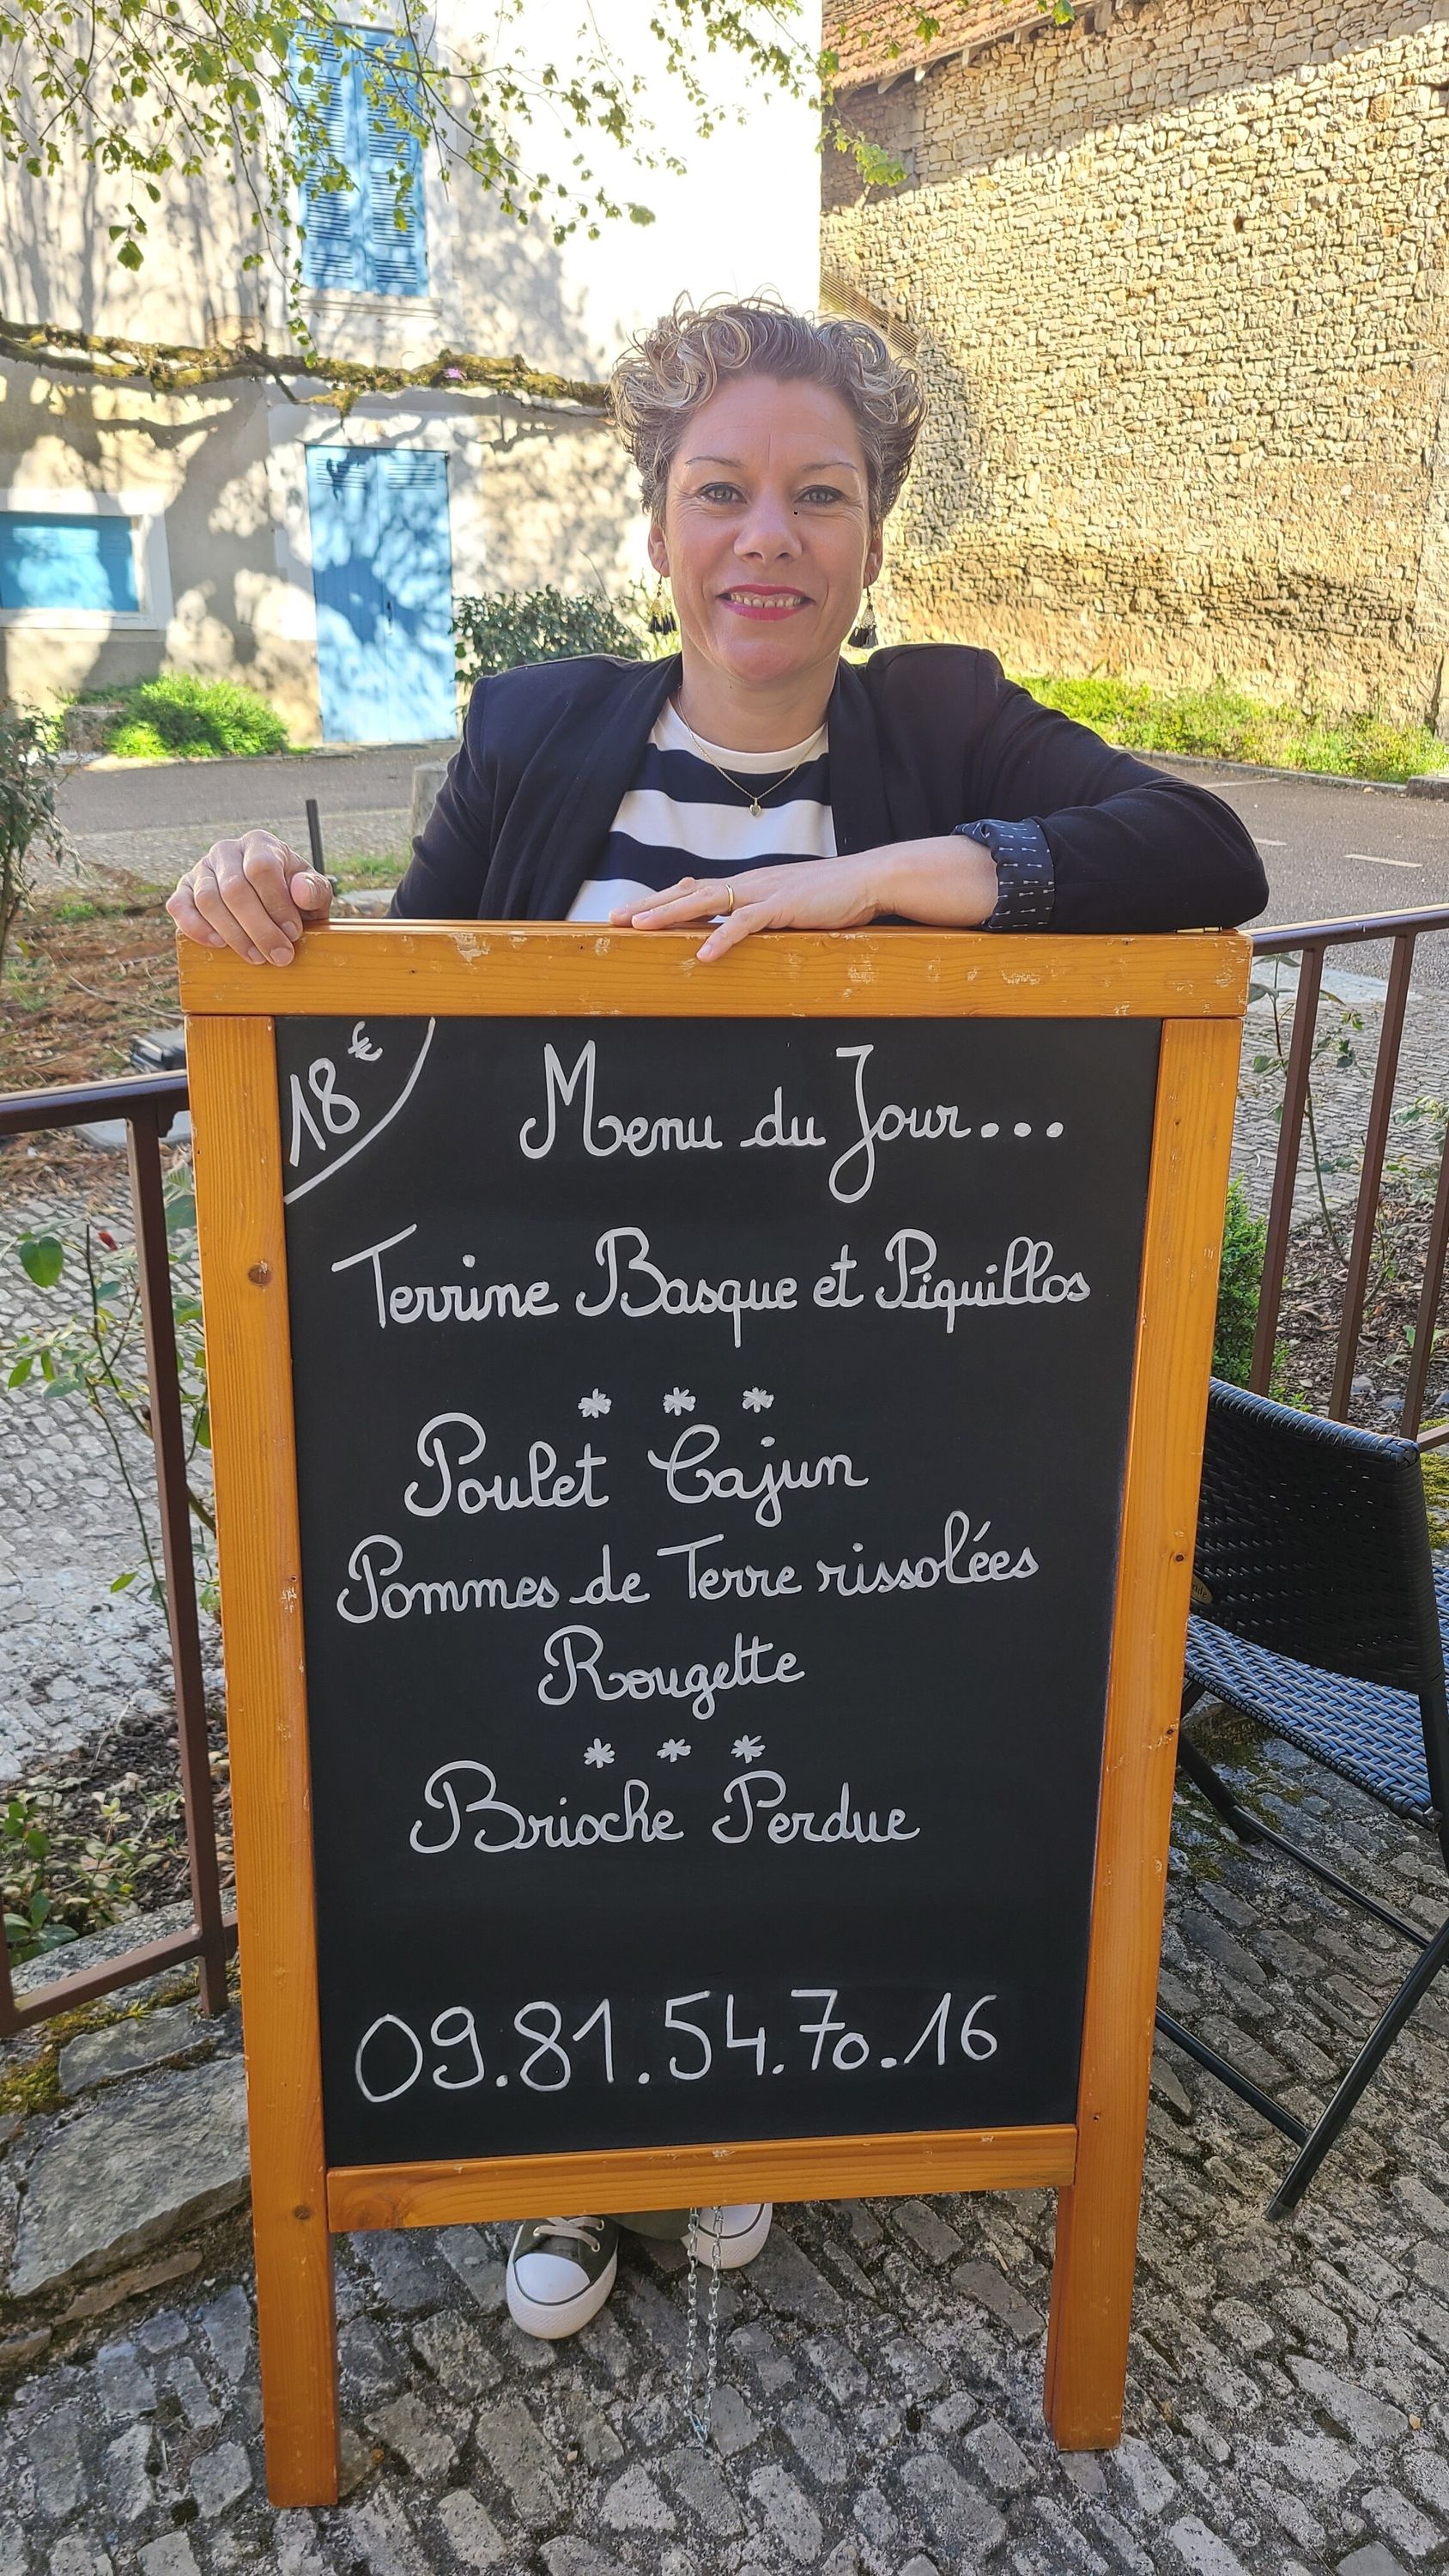 18€
Menu du Jour...
Terrine Basque et Piquillos
* * *
Poulet Cajun
Pommes de Terre rissolées
Rougette
* * *
Brioche Perdue
09.81.54.70.16